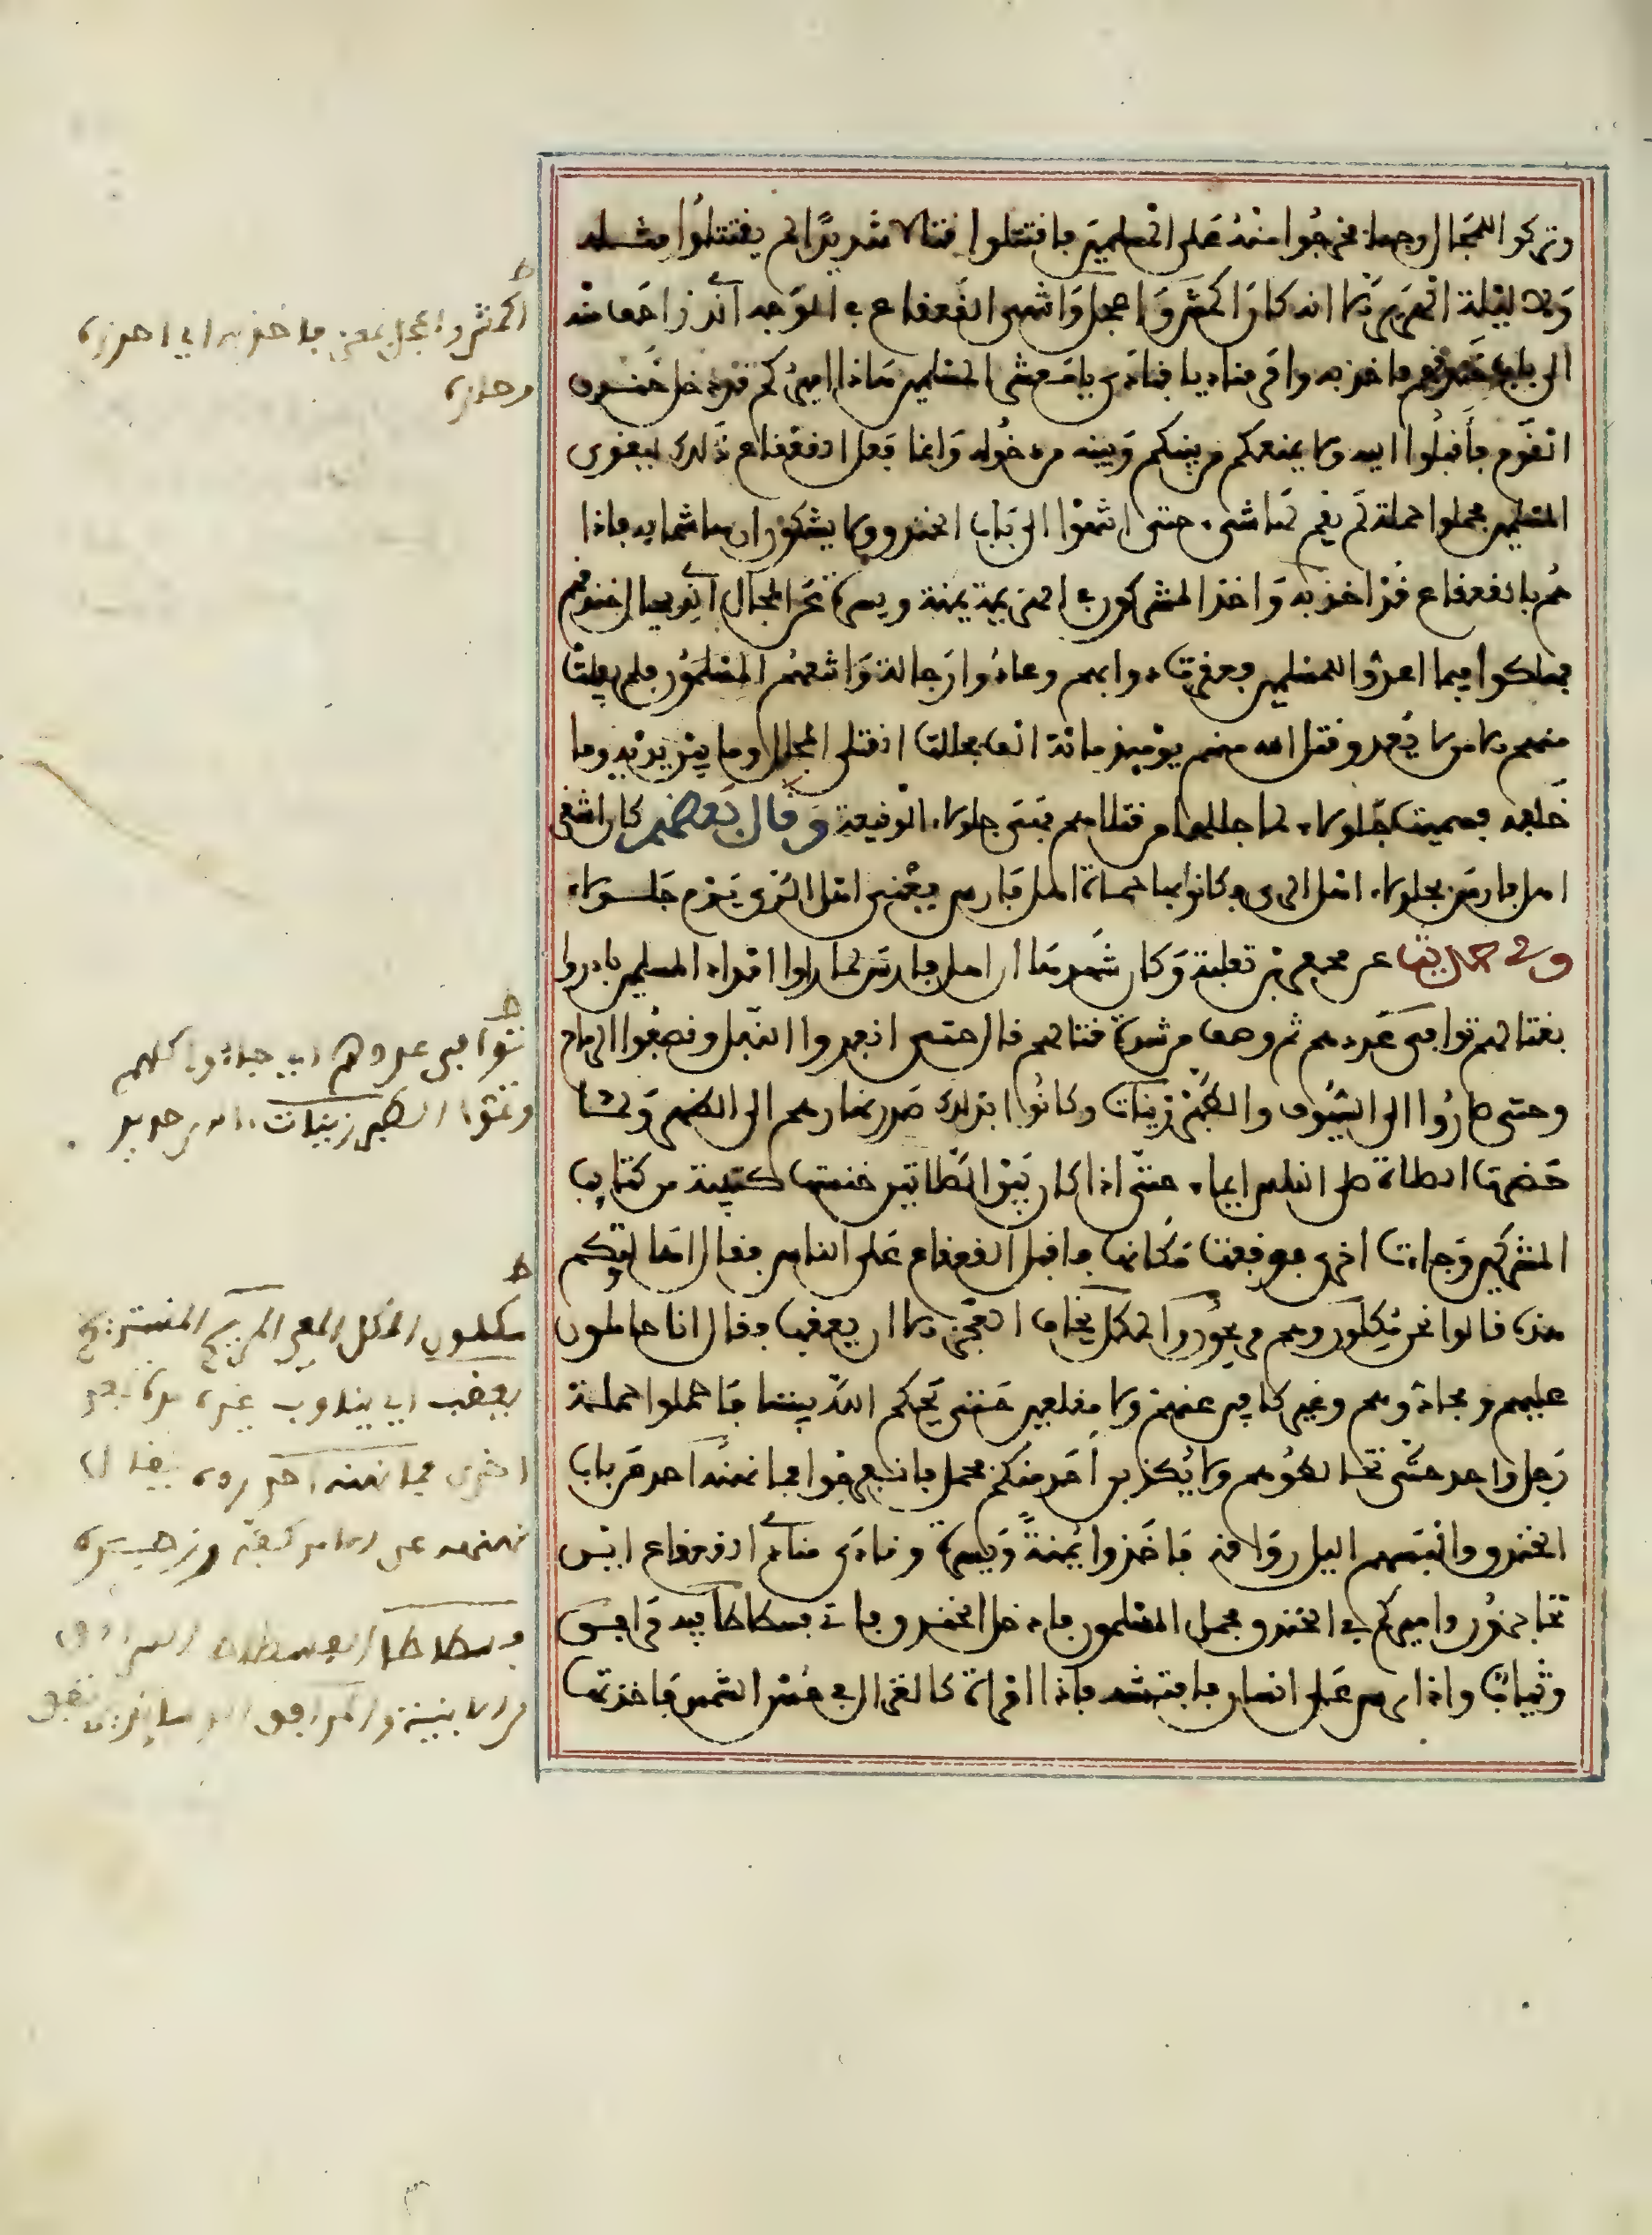 وتركوا للمجال وجها فخرجوا منه على المسلمين فاقتتلوا قتالا شديدا لم يقتتلوا مثله
ولا ليلة الهرير الا انه كان اكمش واعجل وانتهى القعقاع في الوجه الذي زاحف منه
الى باب خندقهم فاخذ به وامر مناديا فنادى يا معشر المسلمين هاذا اميركم قد دخل خندق
القوم فأقبلوا اليه ولا يمنعكم من بينكم وبينه من دخوله وانما فعل القعقاع ذلك ليقوى
المسلمين فحملوا حملة لم يقم لها شيء حتى انتهوا الى باب الخندق ولا يشكون ان هاشما به فاذا
هم بالقعقاع قد اخذ به واخذ المشركون في الهزيمة يمنة ويسرة عن المجال الذي بحيال خندقهم
فهلكوا فيما اعدوا للمسلمين فعقرت دوابهم وعادوا رجالة واتبعهم المسلمون فلم يفلت
منهم الا من لا يعد وقتل الله منهم يومئذ مائة الف فجللت القتلى المجال وما بين يديه وما
خلفه فسميت جلولاء لما جللها من قتلاهم فهي جلولاء الوقيعة وقال بعضهم كان اشقى
اهل فارس بجلولاء اهل الرى وكانوا بها حماة اهل فارس ففني اهل الرى يوم جلولاء
وفي حديث عن محفر بن ثعلبة وكان شهدها ان اهل فارس لما راوا امداد المسلمين بادروا
بقتالهم عددهم ثم وصف من شدة قتالهم قال حتى انفدوا النبل وقصفوا الرماح
وحتى صاروا الى السيوف والطبرزينات وكانوا بذلك صدر نهارهم الى الظهر ولما
حضرت الصلاة صلى الناس ايماء حتى اذا كان بين الصلاتين خنست كتيبة من كتايب
المشركين وجاءت اخرى فوقفت مكانها فاقبل القعقاع على الناس فقال اهالتكم
هذه قالوا نحن مكلون وهم مريحون والكل يخاف العجز الا ان يعقب فقال انا حاملون
عليهم ومجادوهم وغير كافين عنهم ولا مقلعين حتى يحكم الله بيننا فاحملوا حملة
رجل واحد حتى تخالطوهم ولا يكذبن احد منكم فحمل فانفرجوا فما نهنه احد عن باب
الخندق والبسهم اليل رواقه فاخذوا يمنة ويسرة ونادى منادى القعقاع اين
تحاجزون واميركم في الخندق فحمل المسلمون فادخل الخندق فاتى فسطاطا فيه مرافق
وثياب واذا فرش على انسان فانبشه فاذا امراة كالغزال في حسن الشمس فاخذتها
ط
اكمش واعجل فاخذ به اي احرزه
وحازه
ط
عددهم اي جاءوا كلهم
الطبرزينات
ط
مكلون الكل المعي المريح المستريح
يعقب اي يناوب غيره مرة بعد
اخرى فما نهنه اخر رده يقال
نهنهه عن الامر كفه وزجره
فسطاطا الفسطاط السرادق
من الابنية والمرافق